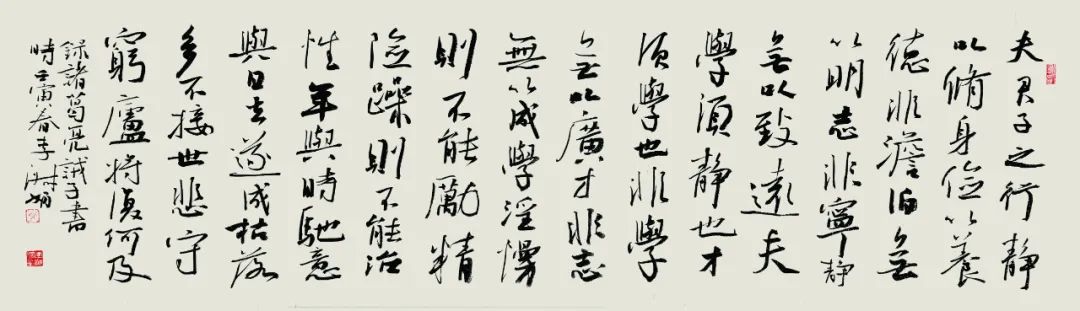 夫君子之行静
以脩身儉以養
德非澹泊無
以明志非寧静
無以致遠夫
學須静也才
須學也非學
無以廣才非志
無以成學淫慢
則不能勵精
險躁則不能治
性年與時馳意
與日去遂成枯落
多不接世悲守
窮廬將復何及
錄諸葛亮誡子書
時壬寅春李